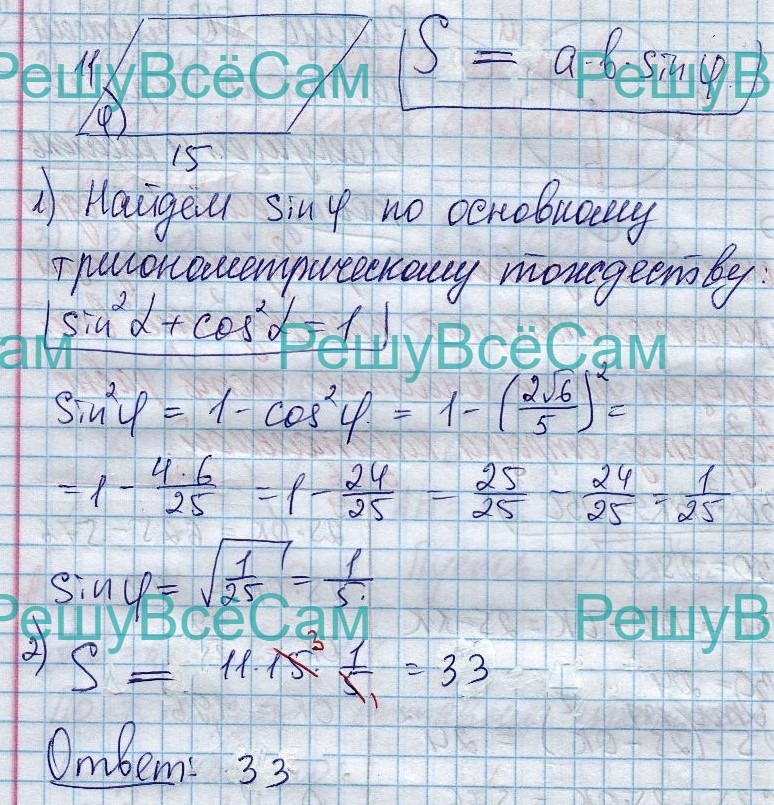 11
S = a·b·sin φ
φ
15
1) Найдём sin φ по основному
тригонометрическому тождеству:
sin²α + cos²α = 1
sin²φ = 1 - cos²φ = 1 - (2√6/5)² =
= 1 - 4·6/25 = 1 - 24/25 = 25/25 - 24/25 = 1/25
sin φ = √(1/25) = 1/5.
2) S = 11·15 3 · 1/5 1 = 33
Ответ: 33
РешуВсёСам
РешуВ
ам
РешуВсёСам
РешуВсёСам
РешуВ